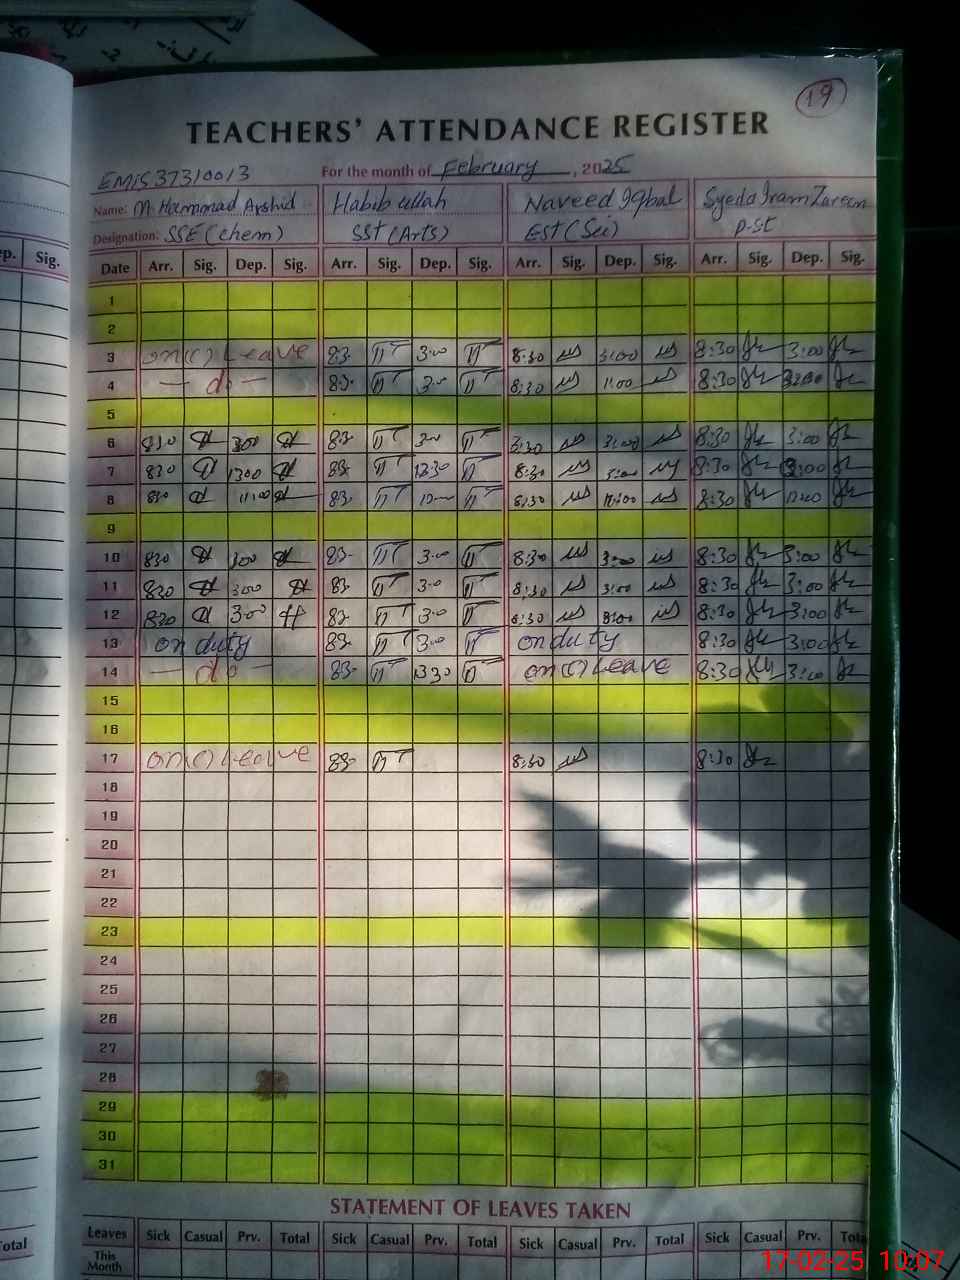 19
TEACHERS' ATTENDANCE REGISTER
EMIS 37310013 For the month of February, 2025
Name: M Hammad Arshid Habib ullah Naveed Iqbal Syeda Iram Zareen
Designation: SSE (chem) SST (Arts) EST (Sci) P-ST
ep. Sig. Date Arr. Sig. Dep. Sig. Arr. Sig. Dep. Sig. Arr. Sig. Dep. Sig. Arr. Sig. Dep. Sig.
1
2
3 on (C) Leave 83- 3:00 8:30 3:00 8:30 3:00
4 — do — 83- 3:00 8:30 11:00 8:30
5
6 830 300 83- 3:00 8:30 3:00
7 820 1300 83- 12:30 8:30 3:00 8:30 3:00
8 830 11:00 83- 8:30 8:30
9
10 830 300 83- 3:00 8:30 3:00 8:30 3:00
11 820 300 83- 3:00 8:30 3:00 8:30 3:00
12 830 3:00 83- 3:00 8:30 3:00 8:30 3:00
13 on duty 83- 3:00 on duty 8:30 3:00
14 — do — 83- 1330 on (C) Leave 8:30 3:00
15
16
17 on (C) Leave 83- 8:30 8:30
18
19
20
21
22
23
24
25
26
27
28
29
30
31
STATEMENT OF LEAVES TAKEN
Total Leaves Sick Casual Prv. Total Sick Casual Prv. Total Sick Casual Prv. Total Sick Casual Prv. Tota
This
Month
17-02-25 10:07